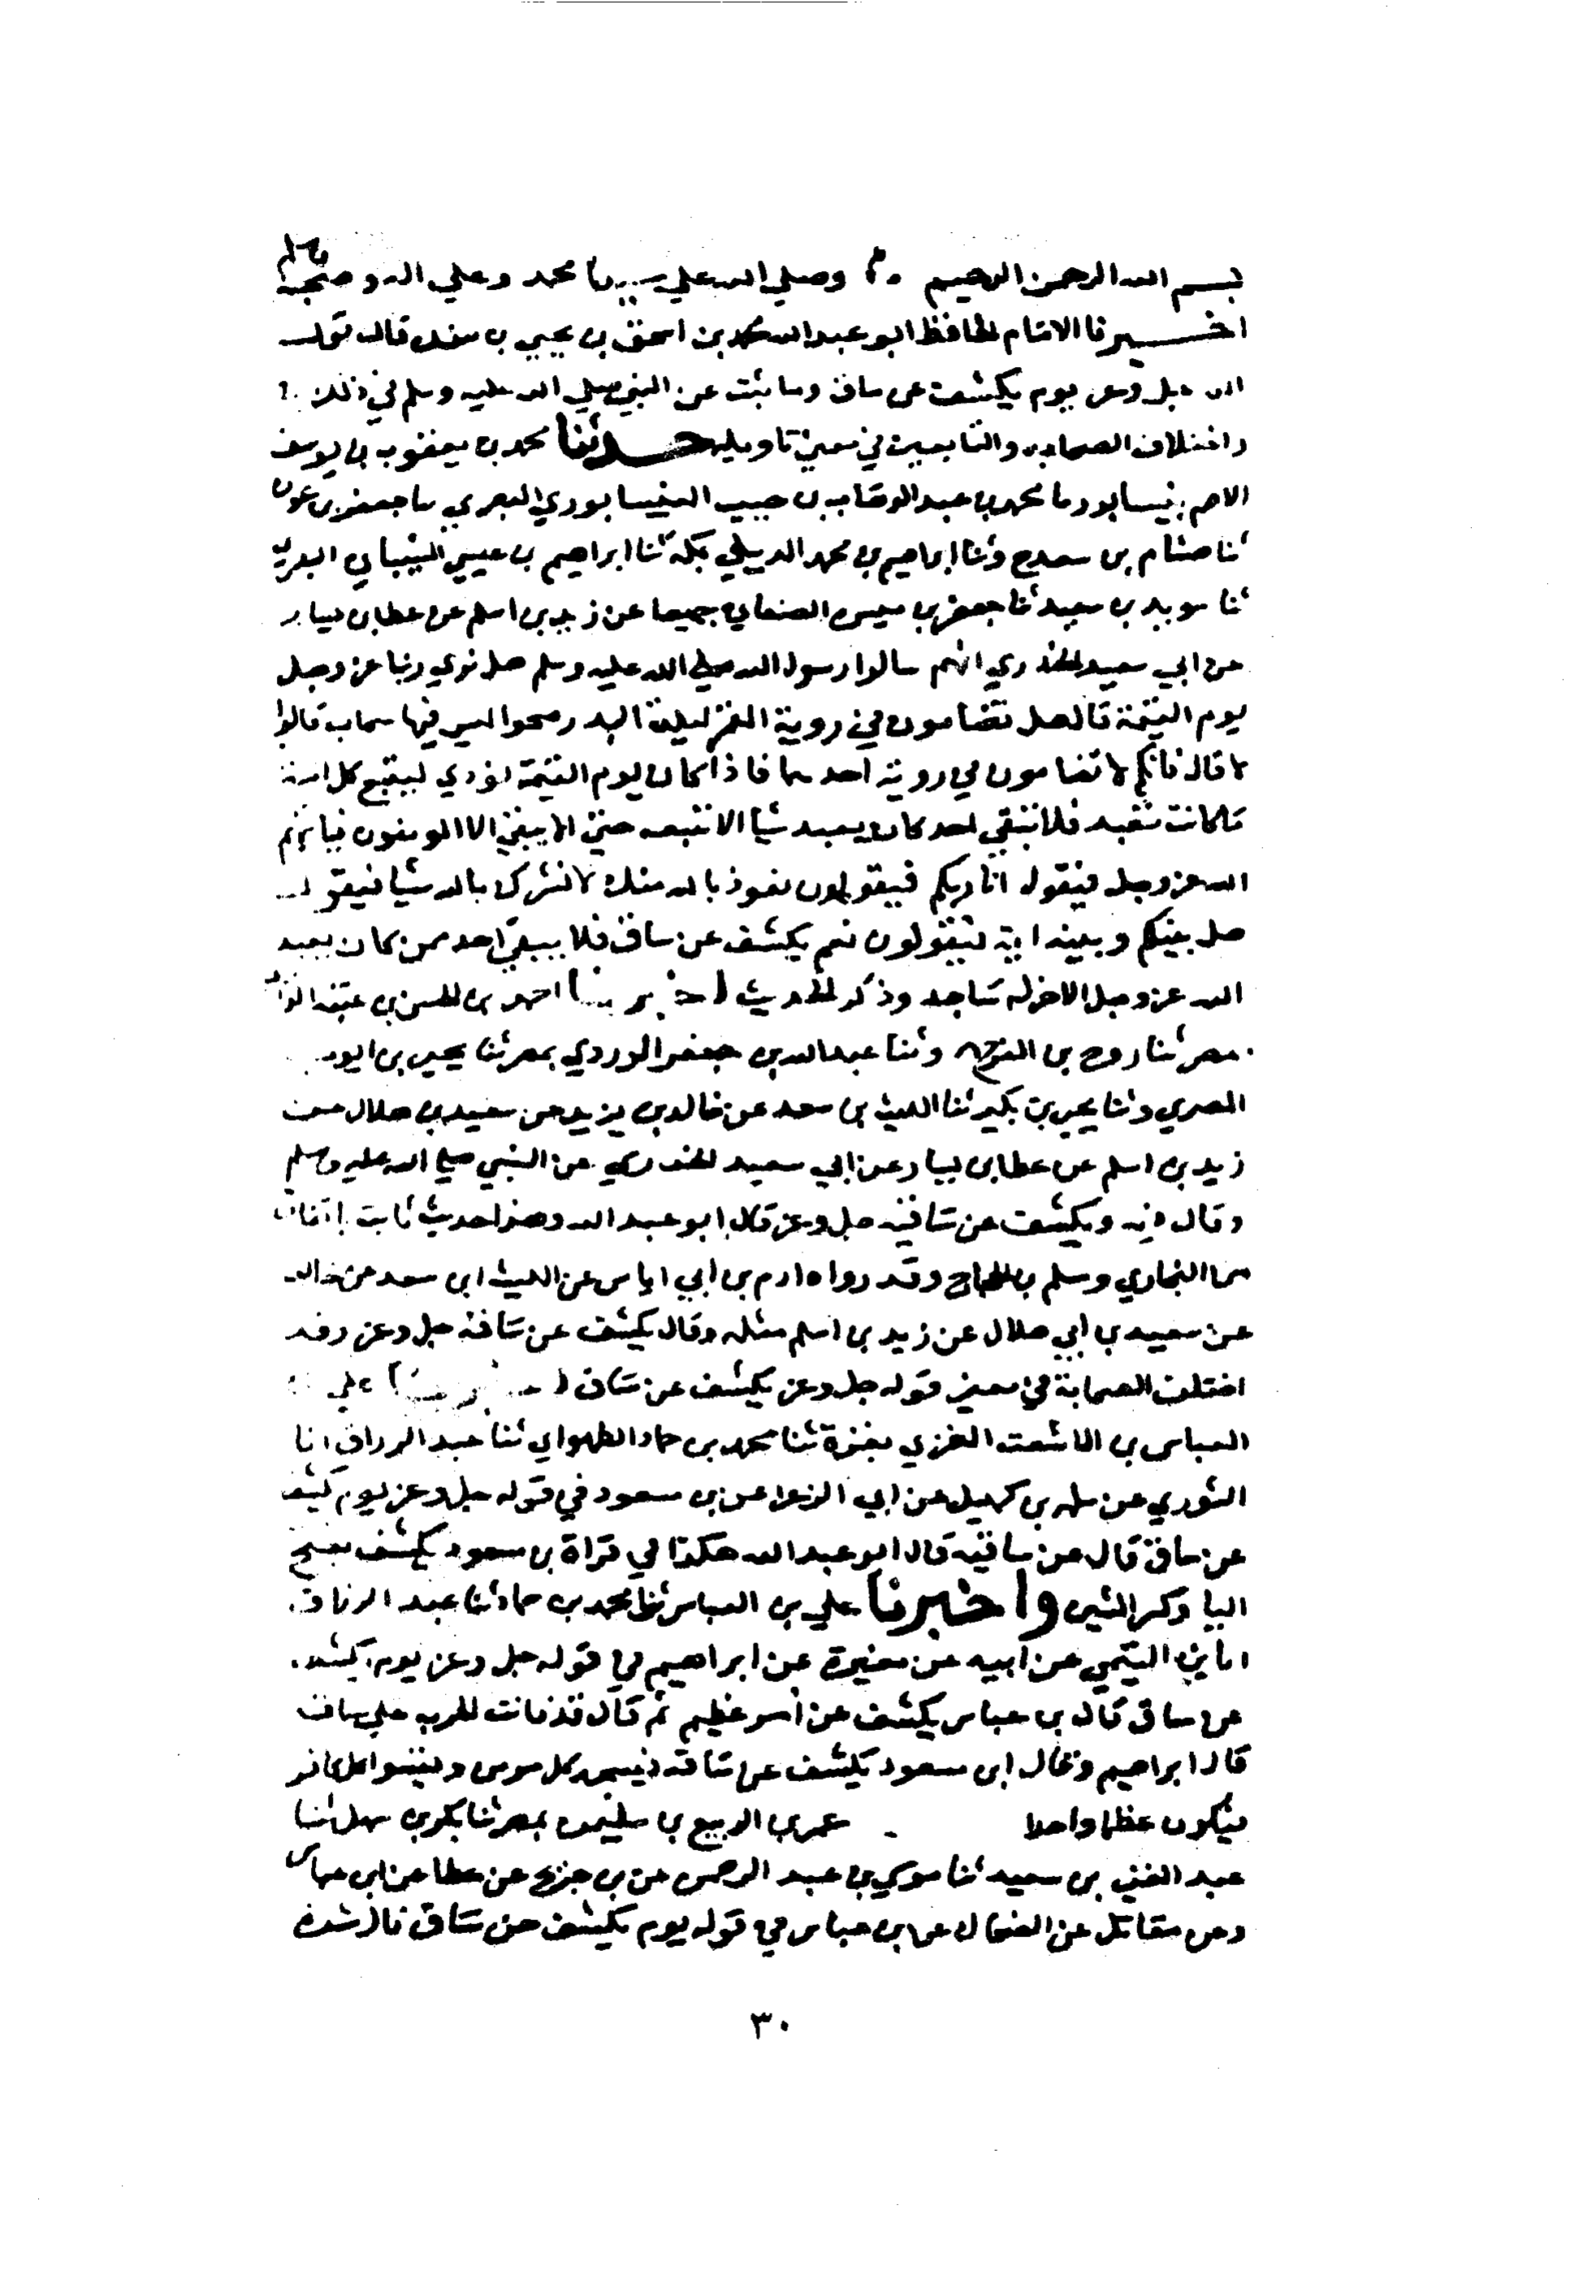 بسم الله الرحمن الرحيم وصلي الله علي سيدنا محمد وعلي اله وصحبه وسلم
اخبرنا الامام الحافظ ابو عبد الله محمد بن اسحق بن يحيي بن منده قال قول
الله جل وعز يوم يكشف عن ساق وما ثبت عن النبي صلي الله عليه وسلم في ذلك
واختلاف الصحابه والتابعين في معني تاويله حدثنا محمد بن يعقوب بن يوسف
الاصم بنيسابور ثنا محمد بن عبد الوهاب بن حبيب النيسابوري العبدي ثنا جعفر بن عون
ثنا هشام بن سعد ح وثنا ابراهيم بن محمد الديبلي بمكه ثنا ابراهيم بن عيسي الشيباني البصري
ثنا سويد بن سعيد ثنا حفص بن ميسرة الصنعاني جميعا عن زيد بن اسلم عن عطا بن يسار
عن ابي سعيد الخدري انهم سالوا رسول الله صلي الله عليه وسلم هل نري ربنا عز وجل
يوم القيمة قال هل تضامون في روية القمر ليلة البدر صحوا ليس فيها سحاب قالوا
لا قال فانكم لا تضامون في روية احدهما فاذا كان يوم القيمة نودي ليتبع كل امة
ما كانت تعبد فلا يبقي احد كان يعبد شيا الا اتبعه حتي لا يبقي الا المومنون فياتيهم
الله عز وجل فيقول انا ربكم فيقولون نعوذ بالله منك لا نشرك بالله شيا فيقول
هل بينكم وبينه اية فيقولون نعم يكشف عن ساق فلا يبقي احد ممن كان يعبد
الله عز وجل الا خر له ساجد وذكر الحديث اخبرنا احمد بن الحسن بن عتبة الرازي
بمصر ثنا روح بن الفرج وثنا عبد الله بن جعفر الوردي بمصر ثنا يحيي بن ايوب
المصري وثنا يحيي بن بكير ثنا الليث بن سعد عن خالد بن يزيد عن سعيد بن هلال عن
زيد بن اسلم عن عطا بن يسار عن ابي سعيد الخدري عن النبي صلي الله عليه وسلم
وقال فيه ويكشف عن ساقيه جل وعز قال ابو عبد الله وهذا حديث ثابت باتفاق
من البخاري ومسلم بن الحجاج وقد رواه ادم بن ابي اياس عن الليث ابن سعد عن خالد
عن سعيد بن ابي هلال عن زيد بن اسلم مثله وقال يكشف عن ساقه جل وعز وقد
اختلف الصحابة في معني قوله جل وعز يكشف عن ساق اخبرنا علي بن
العباس بن الاشعث الغزي بغزة ثنا محمد بن حماد الطهراني ثنا عبد الرزاق انا
الثوري عن سلمه بن كهيل عن ابي الزعرا عن بن مسعود في قوله جل وعز يوم يكشف
عن ساق قال عن ساقيه قال ابو عبد الله هكذا في قراة بن مسعود يكشف بفتح
اليا وكسر الشين واخبرنا علي بن العباس ثنا محمد بن حماد ثنا عبد الرزاق
انا بن التيمي عن ابيه عن مغيرة عن ابراهيم في قوله جل وعز يوم يكشف
عن ساق قال بن عباس يكشف عن امر عظيم ثم قال قد قامت الحرب علي ساق
قال ابراهيم وقال ابن مسعود يكشف عن ساقه فيسجد كل مومن ويقسوا كل كافر
فيكون عظما واحدا عمر بن الربيع بن سليمن بمصر ثنا بكر بن سهل ثنا
عبد الغني بن سعيد ثنا موسي بن عبد الرحمن عن بن جريج عن عطا عن ابن عباس
وعن مقاتل عن الضحاك عن بن عباس في قوله يوم يكشف عن ساق قال شدة
٣٠